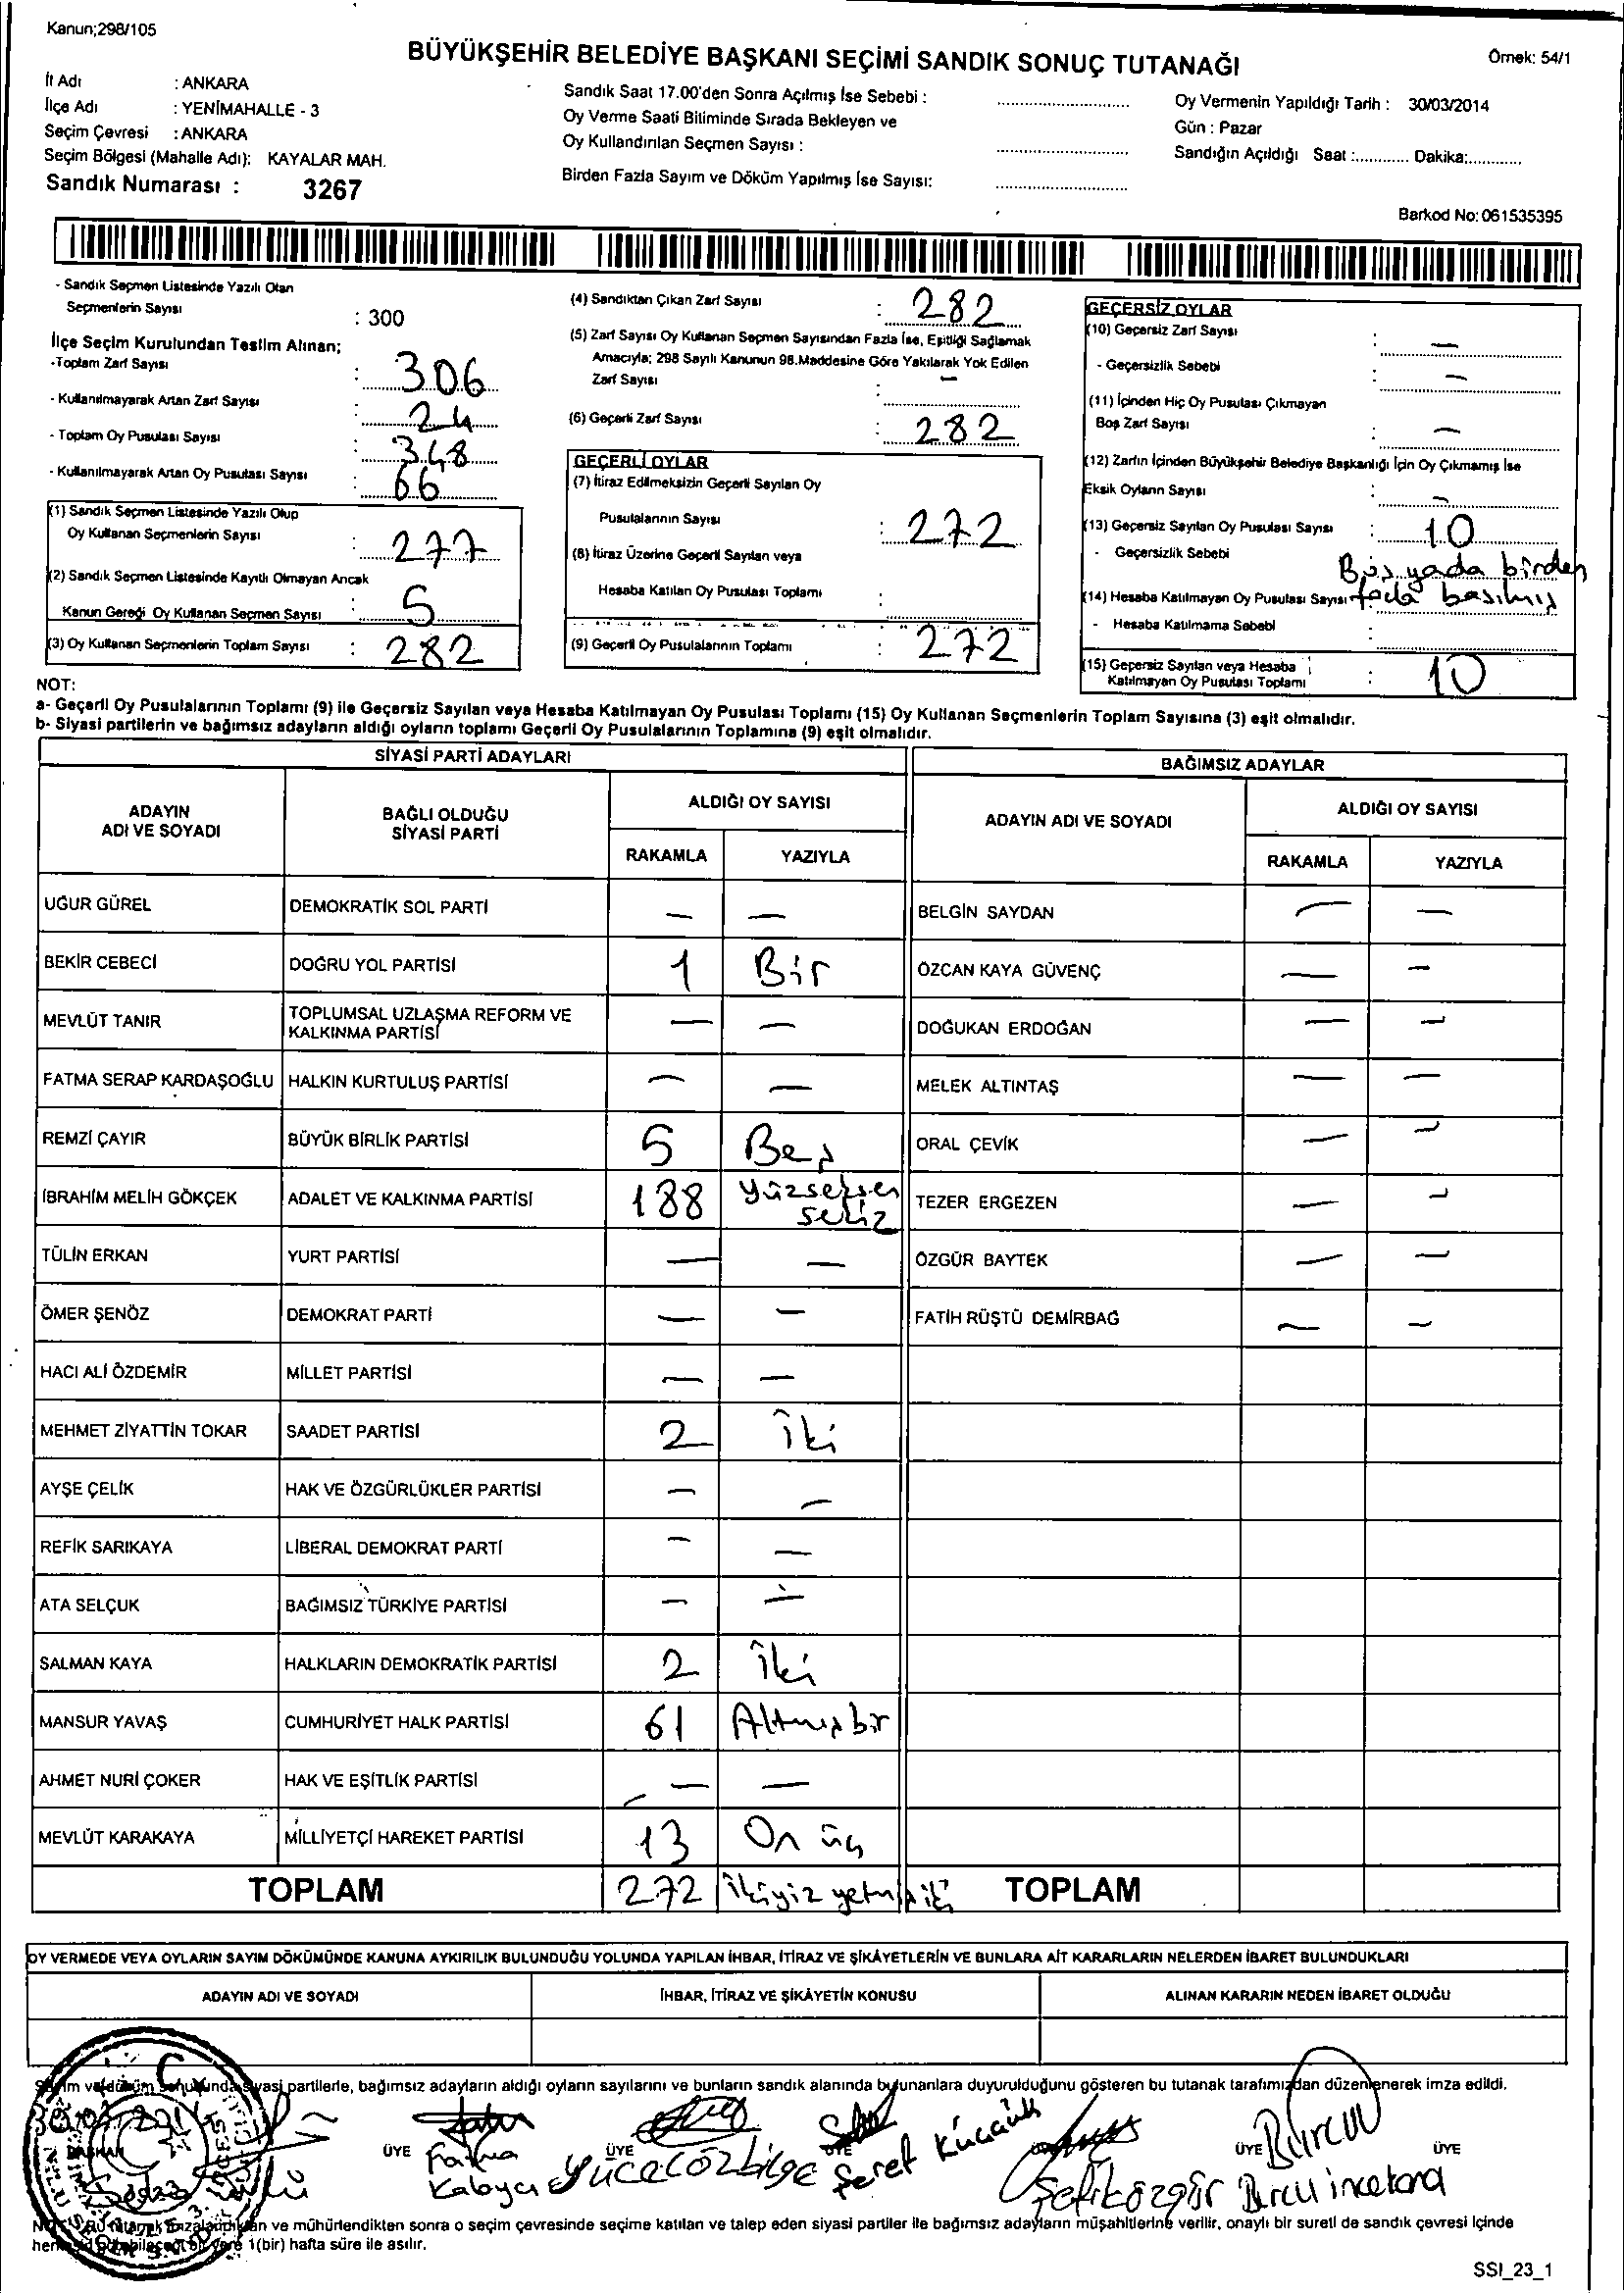 Kanun;298/105
BÜYÜKŞEHİR BELEDİYE BAŞKANI SEÇİMİ SANDIK SONUÇ TUTANAĞI
Örnek: 54/1
İl Adı : ANKARA
İlçe Adı : YENİMAHALLE - 3
Seçim Çevresi : ANKARA
Seçim Bölgesi (Mahalle Adı): KAYALAR MAH.
Sandık Numarası : 3267
Sandık Saat 17.00'den Sonra Açılmış İse Sebebi :
Oy Verme Saati Bitiminde Sırada Bekleyen ve
Oy Kullandırılan Seçmen Sayısı :
Birden Fazla Sayım ve Döküm Yapılmış İse Sayısı:
Oy Vermenin Yapıldığı Tarih : 30/03/2014
Gün : Pazar
Sandığın Açıldığı Saat :............ Dakika:............
Barkod No: 061535395
- Sandık Seçmen Listesinde Yazılı Olan
Seçmenlerin Sayısı : 300
İlçe Seçim Kurulundan Teslim Alınan;
-Toplam Zarf Sayısı : 306
- Kullanılmayarak Artan Zarf Sayısı : 24
- Toplam Oy Pusulası Sayısı : 348
- Kullanılmayarak Artan Oy Pusulası Sayısı : 66
(1) Sandık Seçmen Listesinde Yazılı Olup
Oy Kullanan Seçmenlerin Sayısı : 277
(2) Sandık Seçmen Listesinde Kayıtlı Olmayan Ancak
Kanun Gereği Oy Kullanan Seçmen Sayısı : 5
(3) Oy Kullanan Seçmenlerin Toplam Sayısı : 282
(4) Sandıktan Çıkan Zarf Sayısı : 282
(5) Zarf Sayısı Oy Kullanan Seçmen Sayısından Fazla İse, Eşitliği Sağlamak
Amacıyla; 298 Sayılı Kanunun 98.Maddesine Göre Yakılarak Yok Edilen
Zarf Sayısı : —
(6) Geçerli Zarf Sayısı : 282
GEÇERLİ OYLAR
(7) İtiraz Edilmeksizin Geçerli Sayılan Oy
Pusulalarının Sayısı : 272
(8) İtiraz Üzerine Geçerli Sayılan veya
Hesaba Katılan Oy Pusulası Toplamı :
(9) Geçerli Oy Pusulalarının Toplamı : 272
GEÇERSİZ OYLAR
(10) Geçersiz Zarf Sayısı : —
- Geçersizlik Sebebi : —
(11) İçinden Hiç Oy Pusulası Çıkmayan
Boş Zarf Sayısı : —
(12) Zarfın İçinden Büyükşehir Belediye Başkanlığı İçin Oy Çıkmamış İse
Eksik Oyların Sayısı : —
(13) Geçersiz Sayılan Oy Pusulası Sayısı : 10
- Geçersizlik Sebebi Boş yada birden
(14) Hesaba Katılmayan Oy Pusulası Sayısı fazla basılmış
- Hesaba Katılmama Sebebi :
(15) Geçersiz Sayılan veya Hesaba
Katılmayan Oy Pusulası Toplamı : 10
NOT:
a- Geçerli Oy Pusulalarının Toplamı (9) ile Geçersiz Sayılan veya Hesaba Katılmayan Oy Pusulası Toplamı (15) Oy Kullanan Seçmenlerin Toplam Sayısına (3) eşit olmalıdır.
b- Siyasi partilerin ve bağımsız adayların aldığı oyların toplamı Geçerli Oy Pusulalarının Toplamına (9) eşit olmalıdır.
SİYASİ PARTİ ADAYLARI
BAĞIMSIZ ADAYLAR
ADAYIN ADI VE SOYADI
BAĞLI OLDUĞU SİYASİ PARTİ
ALDIĞI OY SAYISI
RAKAMLA YAZIYLA
ADAYIN ADI VE SOYADI
ALDIĞI OY SAYISI
RAKAMLA YAZIYLA
UĞUR GÜREL DEMOKRATİK SOL PARTİ — — BELGİN SAYDAN — —
BEKİR CEBECİ DOĞRU YOL PARTİSİ 1 Bir ÖZCAN KAYA GÜVENÇ — —
MEVLÜT TANIR TOPLUMSAL UZLAŞMA REFORM VE KALKINMA PARTİSİ — — DOĞUKAN ERDOĞAN — —
FATMA SERAP KARDAŞOĞLU HALKIN KURTULUŞ PARTİSİ — — MELEK ALTINTAŞ — —
REMZİ ÇAYIR BÜYÜK BİRLİK PARTİSİ 5 Beş ORAL ÇEVİK — —
İBRAHİM MELİH GÖKÇEK ADALET VE KALKINMA PARTİSİ 188 Yüzseksen sekiz TEZER ERGEZEN — —
TÜLİN ERKAN YURT PARTİSİ — — ÖZGÜR BAYTEK — —
ÖMER ŞENÖZ DEMOKRAT PARTİ — — FATİH RÜŞTÜ DEMİRBAĞ — —
HACI ALİ ÖZDEMİR MİLLET PARTİSİ — —
MEHMET ZİYATTİN TOKAR SAADET PARTİSİ 2 İki
AYŞE ÇELİK HAK VE ÖZGÜRLÜKLER PARTİSİ — —
REFİK SARIKAYA LİBERAL DEMOKRAT PARTİ — —
ATA SELÇUK BAĞIMSIZ TÜRKİYE PARTİSİ — —
SALMAN KAYA HALKLARIN DEMOKRATİK PARTİSİ 2 İki
MANSUR YAVAŞ CUMHURİYET HALK PARTİSİ 61 Altmışbir
AHMET NURİ ÇOKER HAK VE EŞİTLİK PARTİSİ — —
MEVLÜT KARAKAYA MİLLİYETÇİ HAREKET PARTİSİ 13 On üç
TOPLAM 272 İkiyüz yetmiş iki TOPLAM
OY VERMEDE VEYA OYLARIN SAYIM DÖKÜMÜNDE KANUNA AYKIRILIK BULUNDUĞU YOLUNDA YAPILAN İHBAR, İTİRAZ VE ŞİKÂYETLERİN VE BUNLARA AİT KARARLARIN NELERDEN İBARET BULUNDUKLARI
ADAYIN ADI VE SOYADI İHBAR, İTİRAZ VE ŞİKÂYETİN KONUSU ALINAN KARARIN NEDEN İBARET OLDUĞU
Sayım ve döküm sonucunda siyasi partilerle, bağımsız adayların aldığı oyların sayılarını ve bunların sandık alanında bulunanlara duyurulduğunu gösteren bu tutanak tarafımızdan düzenlenerek imza edildi.
BAŞKAN ÜYE ÜYE ÜYE ÜYE ÜYE
Fatma Yücel Özbilge Seret Küçük Şefik Özgür Burcu İncekara
NOT: Bu tutanak imzalandıktan ve mühürlendikten sonra o seçim çevresinde seçime katılan ve talep eden siyasi partiler ile bağımsız adayların müşahitlerine verilir, onaylı bir sureti de sandık çevresi içinde
herkesin görebileceği bir yere 1(bir) hafta süre ile asılır.
SSI_23_1